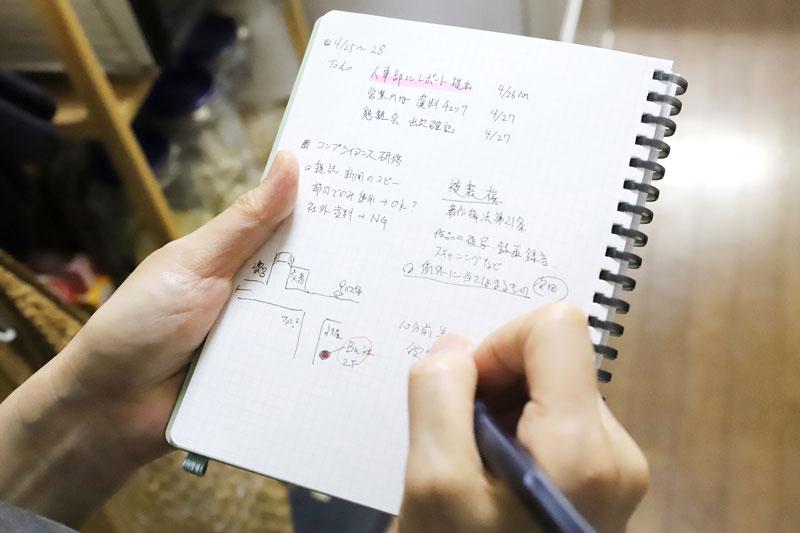 4/25〜28
ToDo
人事部にレポート提出 4/26 AM
営業 資料チェック 4/27
懇親会 出欠確認 4/27
コンプライアンス研修
雑誌 新聞のコピー
部内でのみ使用→OK?
社外資料→NG
複製権
著作権法第21条
作品の複写・録画録音
スキャニングなど
例外に当てはまるもの
10分前
2F